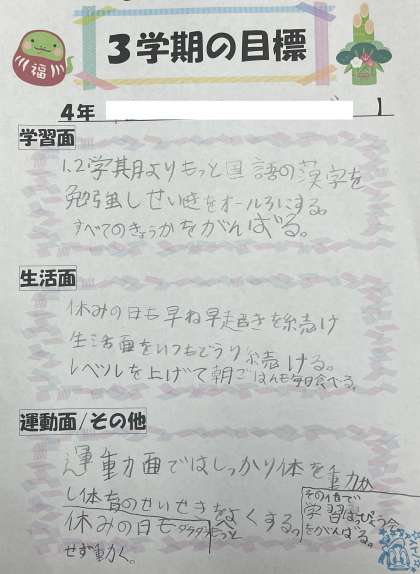 福
3学期の目標
4年
学習面
1.2学期よりもっと国語の漢字を
勉強しせいせきをオール3にする。
すべてのきょうかをがんばる。
生活面
休みの日も早ね早起きを続け
生活面をいつもどうり続ける。
レベルを上げて朝ごはんも毎日食べる。
運動面/その他
運動面ではしっかり体を動か
し体育のせいせきをよくする。
休みの日もダラダラもっと
せず動く。
その他で
学習はっぴょう会
をがんばる。